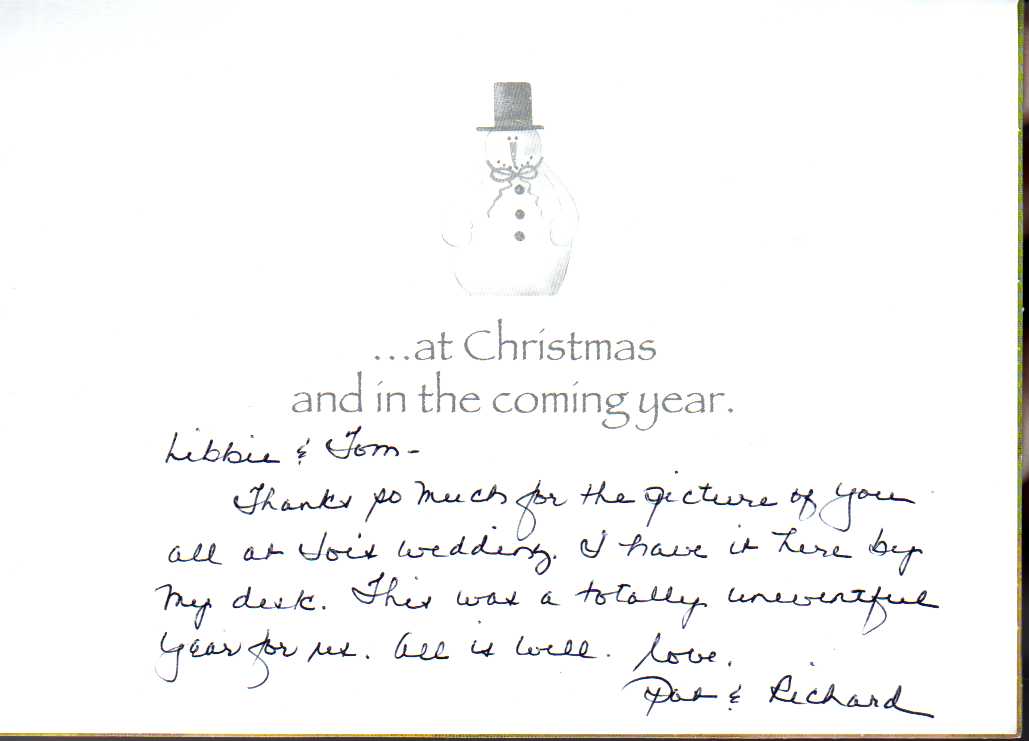 ...at Christmas
and in the coming year.
Libbie & Tom -
Thanks so much for the picture of you
all at Lois wedding. I have it here by
my desk. This was a totally uneventful
year for us. All is well. Love,
Pat & Richard